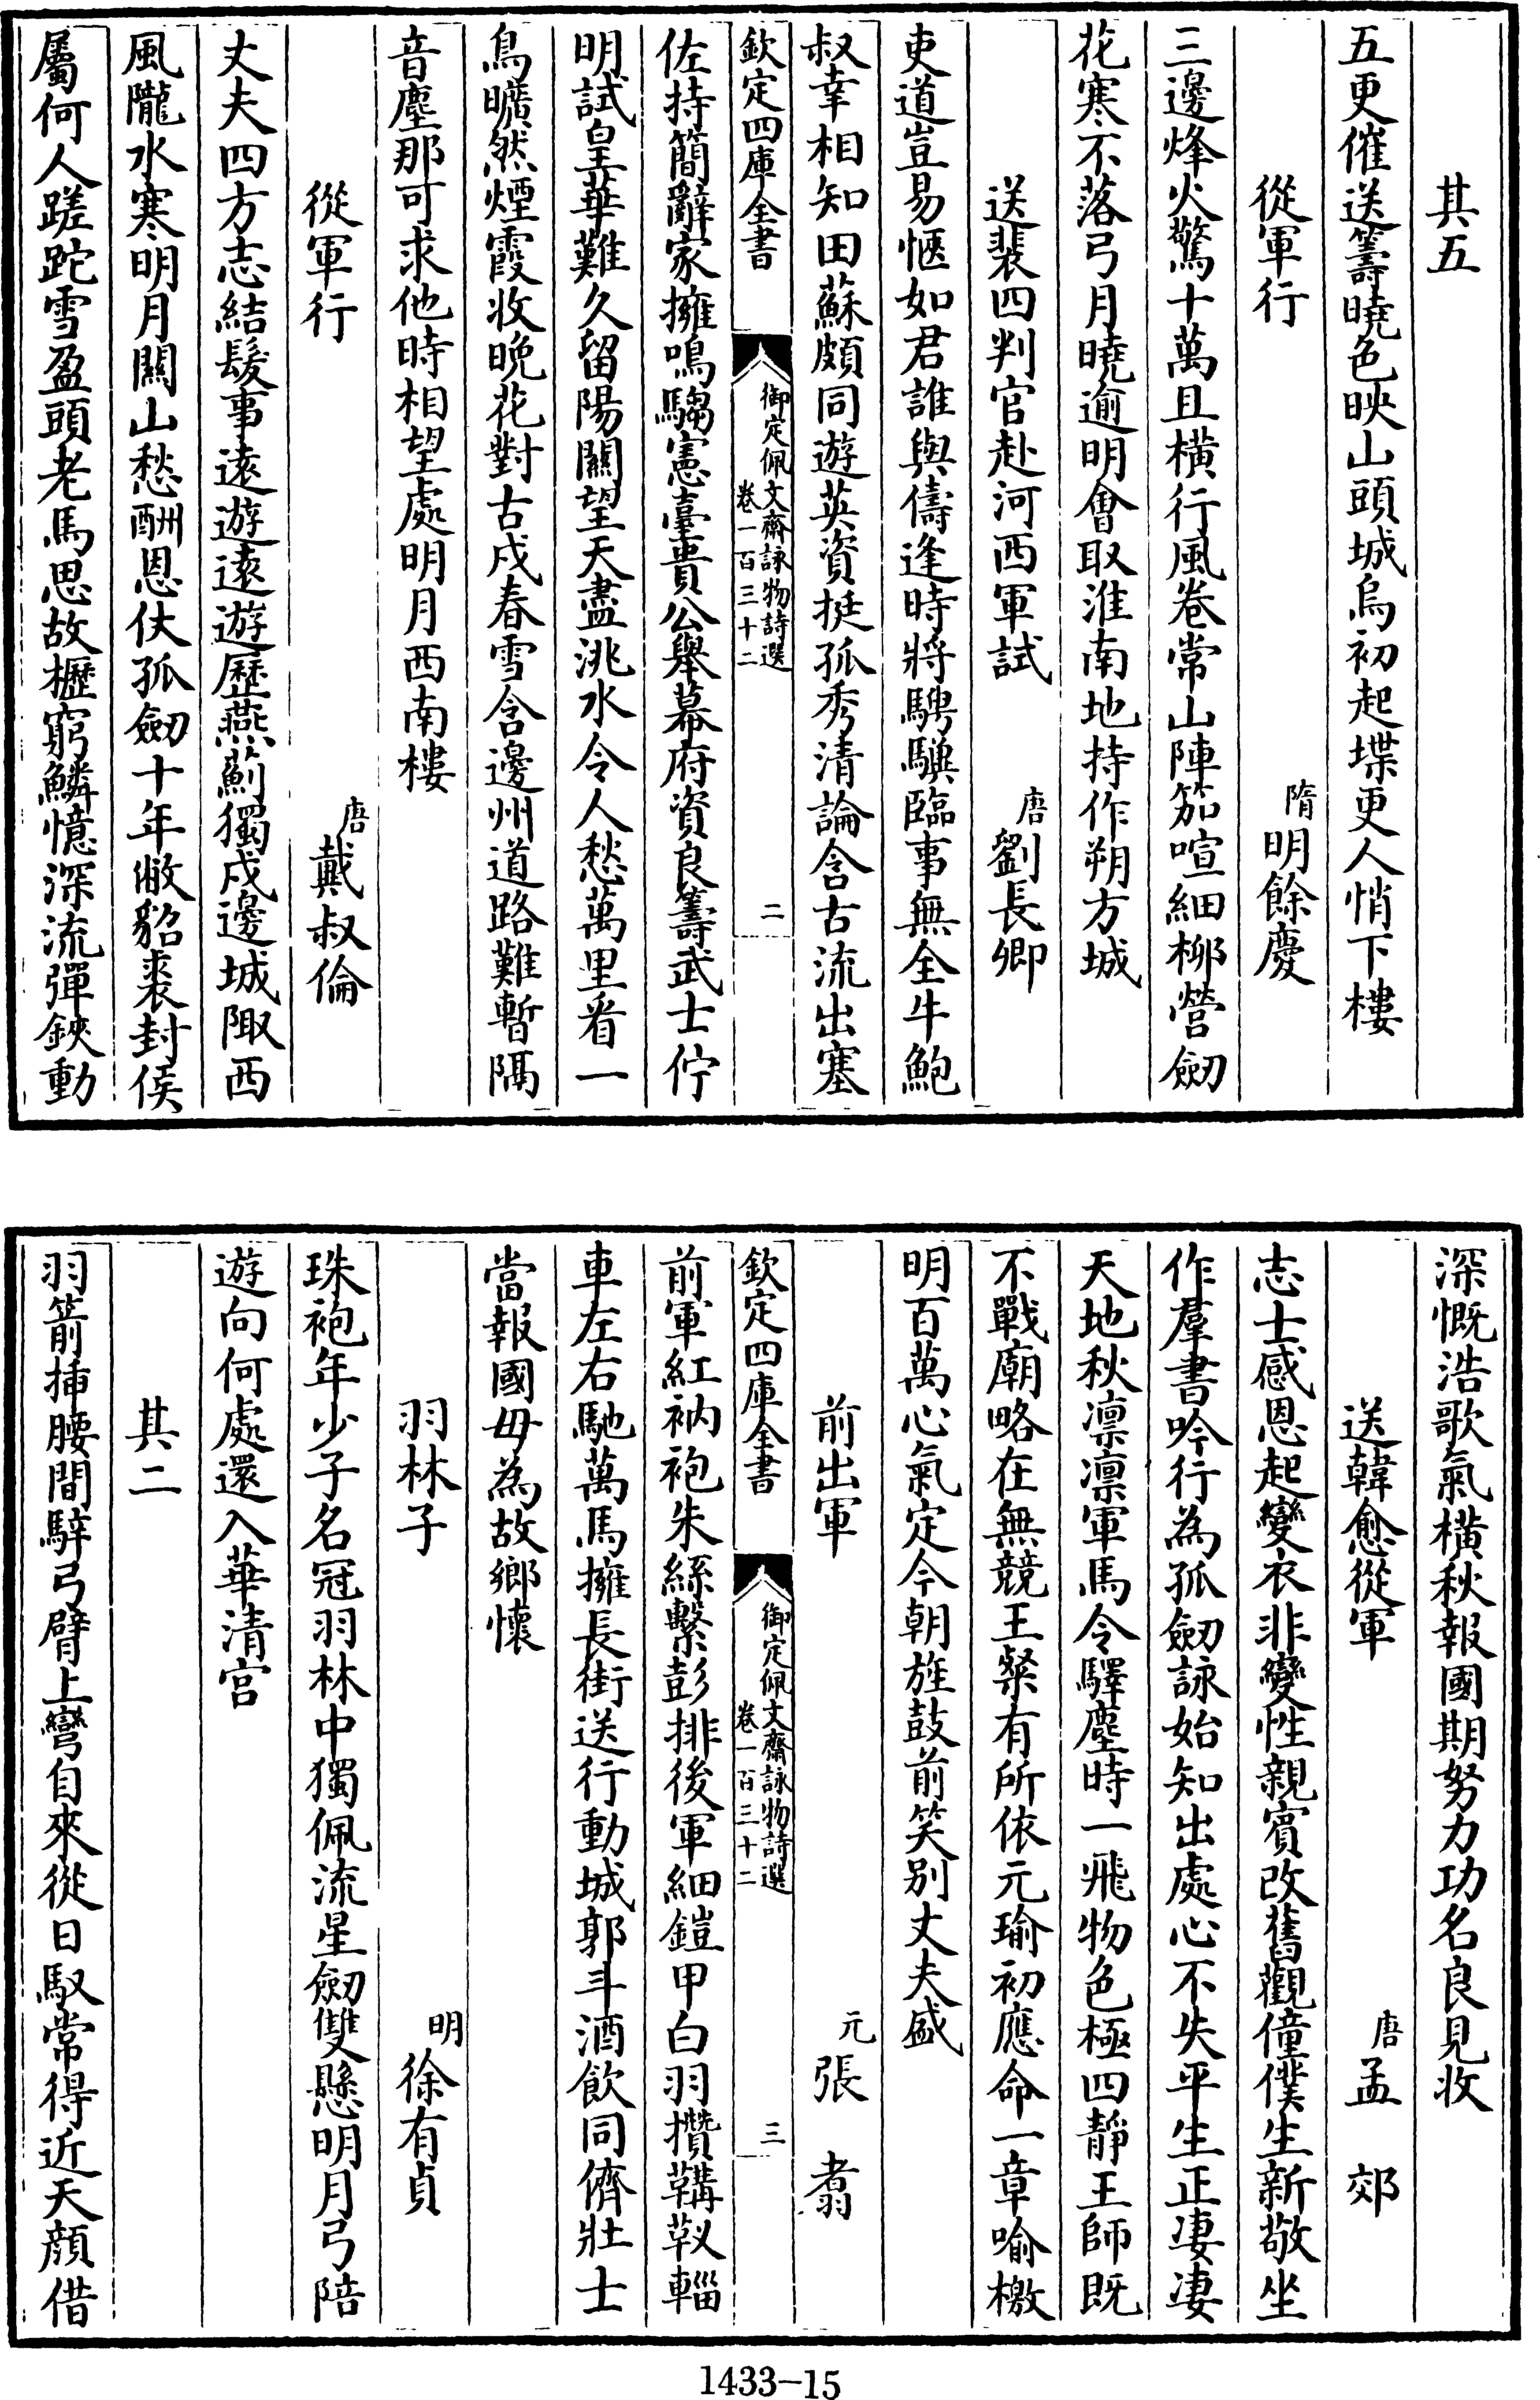 其五
五更催送籌曉色映山頭城烏初起堞更人悄下樓
從軍行 隋 明餘慶
三邊烽火驚十萬且橫行風卷常山陣笳喧細柳營劒
花寒不落弓月曉逾明會取淮南地持作朔方城
送裴四判官赴河西軍試 唐 劉長卿
吏道豈易愜如君誰與儔逢時將騁驥臨事無全牛鮑
叔幸相知田蘇頗同遊英資挺孤秀清論含古流出塞
欽定四庫全書 御定佩文齋詠物詩選 卷一百三十二 二
佐持簡辭家擁鳴騶憲臺貴公舉幕府資良籌武士佇
明試皇華難久留陽關望天盡洮水令人愁萬里看一
鳥曠然煙霞收晚花對古戍春雪含邊州道路難暫隔
音塵那可求他時相望處明月西南樓
從軍行 唐 戴叔倫
丈夫四方志結髮事遠遊遠遊歷燕薊獨戍邊城陬西
風隴水寒明月關山愁酬恩仗孤劒十年敝貂裘封侯
屬何人蹉跎雪盈頭老馬思故櫪窮鱗憶深流彈鋏動
深慨浩歌氣橫秋報國期努力功名良見收
送韓愈從軍 唐 孟郊
志士感恩起變衣非變性親賓改舊觀僮僕生新敬坐
作羣書吟行為孤劒詠始知出處心不失平生正凄凄
天地秋凛凛軍馬令驛塵時一飛物色極四靜王師既
不戰廟略在無競王粲有所依元瑜初應命一章喻檄
明百萬心氣定今朝旌鼓前笑别丈夫盛
前出軍 元 張翥
欽定四庫全書 御定佩文齋詠物詩選 卷一百三十二 三
前軍紅衲袍朱絲繫彭排後軍細鎧甲白羽攢鞲靫輜
車左右馳萬馬擁長街送行動城郭斗酒飲同儕壯士
當報國毋為故鄉懷
羽林子 明 徐有貞
珠袍年少子名冠羽林中獨佩流星劒雙懸明月弓陪
遊向何處還入華清宫
其二
羽箭插腰間騂弓臂上彎自來從日馭常得近天顔借
1433-15